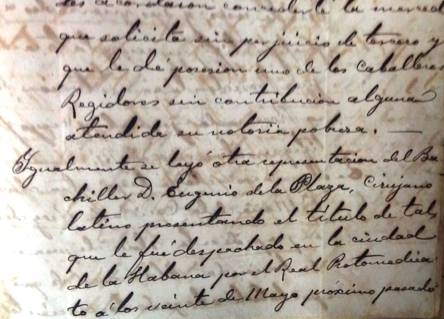 les acordaron concederle la merced
que solicita sin perjuicio de tercero y
que le dé posesion uno de los caballeros
Regidores sin contribucion alguna
atendida su notoria pobreza. —
Igualmente se leyó otra representacion del Ba
chiller D. Eugenio de la Plaza, cirujano
latino presentando el titulo de tal,
que le fué despachado en la ciudad
de la Habana por el Real Protomedica
to á los veinte de Mayo próximo pasado